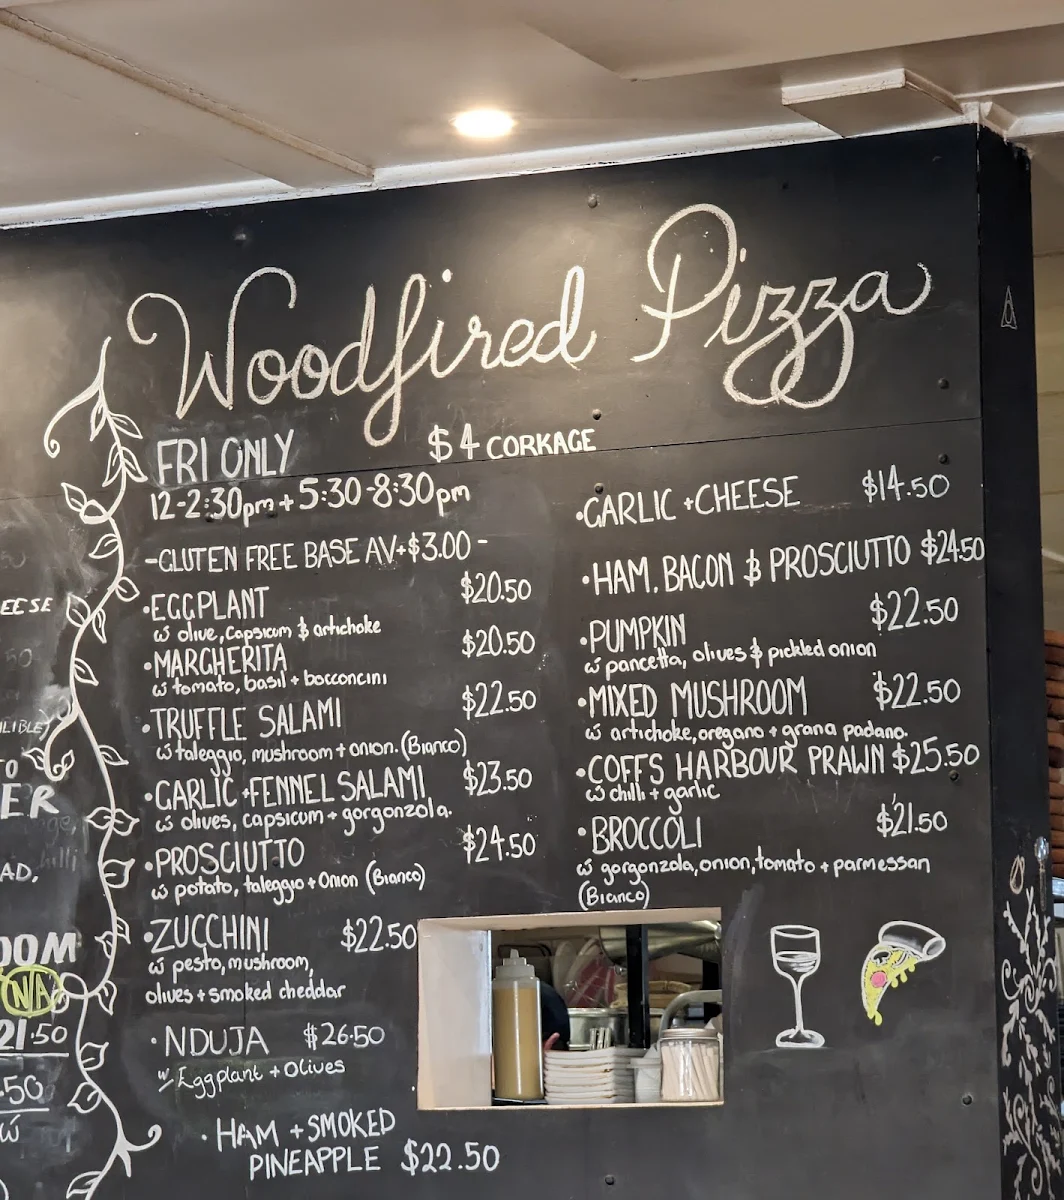 Woodfired Pizza
FRI ONLY
12-2:30pm + 5:30-8:30pm
$4 CORKAGE
-GLUTEN FREE BASE AV+$3.00-
•EGGPLANT $20.50
w̄ olive, capsicum & artichoke
•MARGHERITA $20.50
w̄ tomato, basil + bocconcini
•TRUFFLE SALAMI $22.50
w̄ taleggio, mushroom + onion. (Bianco)
•GARLIC+FENNEL SALAMI $23.50
w̄ olives, capsicum + gorgonzola.
•PROSCIUTTO $24.50
w̄ potato, taleggio + Onion (Bianco)
•ZUCCHINI $22.50
w̄ pesto, mushroom,
olives + smoked cheddar
•NDUJA $26.50
w/ Eggplant + Olives
•HAM + SMOKED
PINEAPPLE $22.50
•GARLIC +CHEESE $14.50
•HAM, BACON & PROSCIUTTO $24.50
•PUMPKIN $22.50
w̄ pancetta, olives & pickled onion
•MIXED MUSHROOM $22.50
w̄ artichoke, oregano + grana padano.
•COFFS HARBOUR PRAWN $25.50
w̄ chilli + garlic
•BROCCOLI $21.50
w̄ gorgonzola, onion, tomato + parmessan
(Bianco)
EESE
ER
AD,
OOM
NA
21.50
.50
w̄